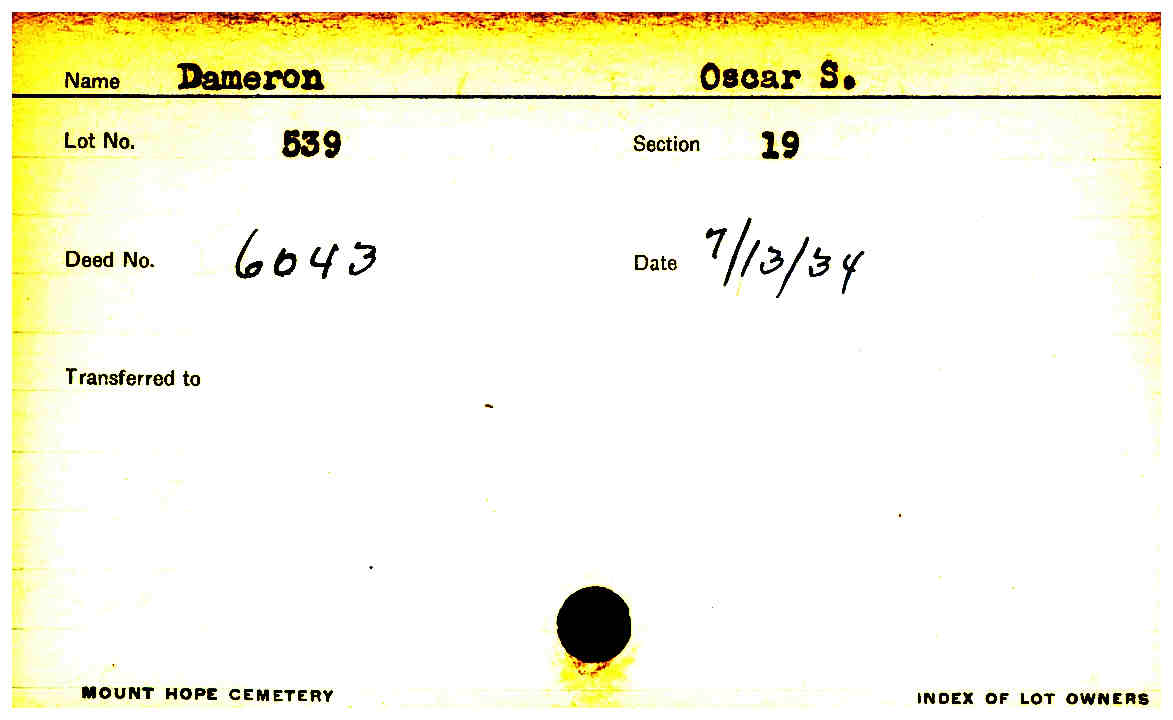 Name Dameron Oscar S.
Lot No. 539 Section 19
Deed No. 6043 Date 7/13/34
Transferred to
MOUNT HOPE CEMETERY INDEX OF LOT OWNERS